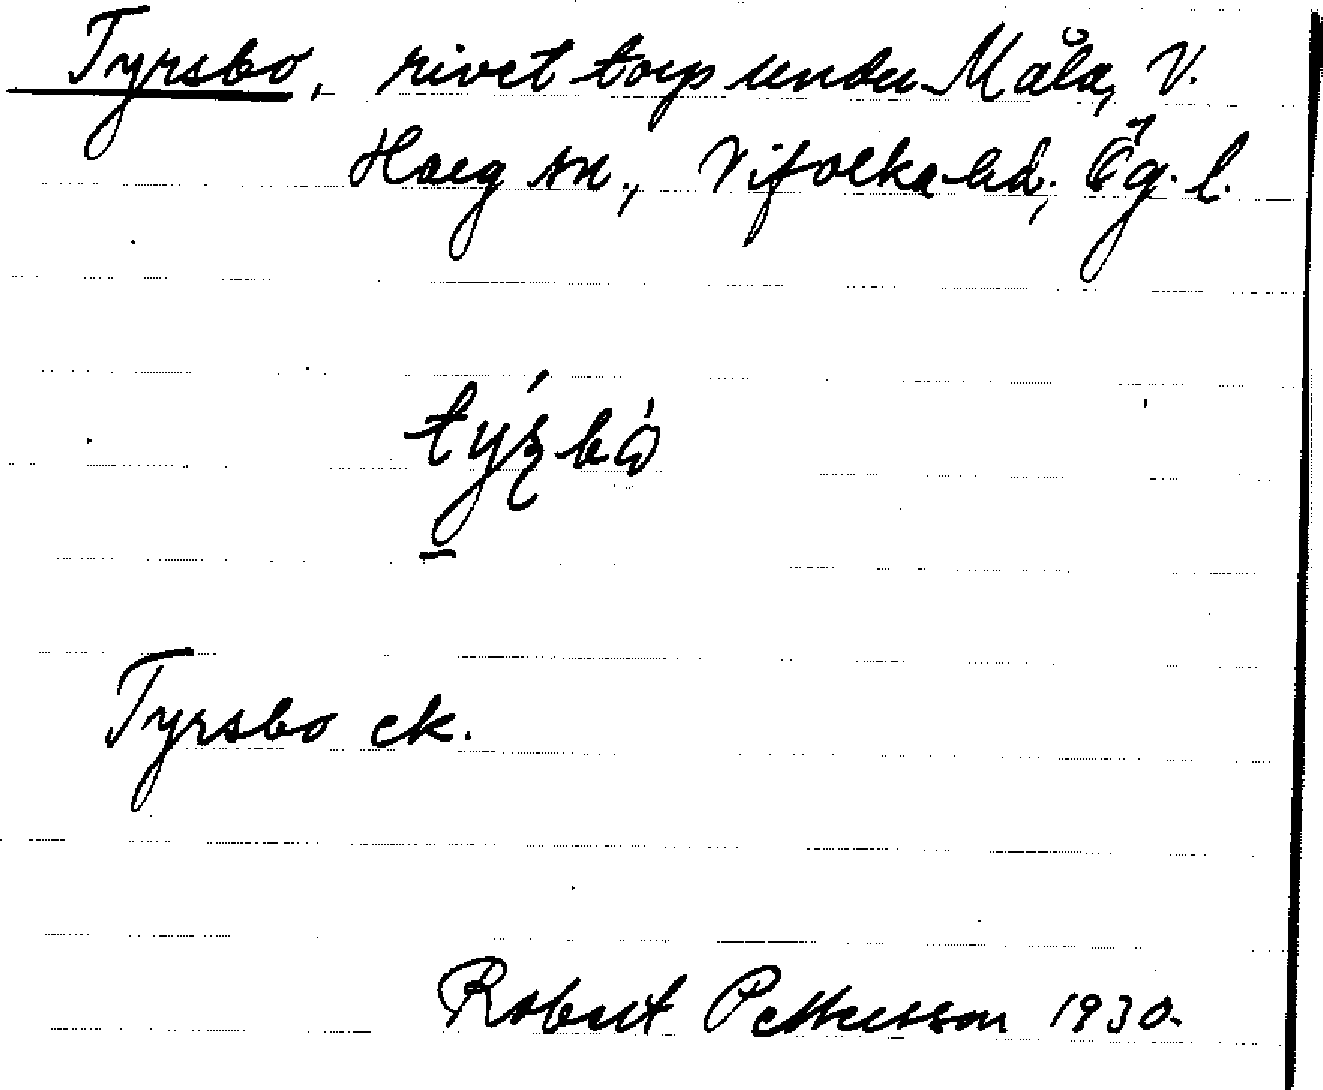 Tyrsbo, rivet torp under Måla, V.
Harg sn., Vifolka hd, Ög. l.
týʂbò
Tyrsbo ek.
Robert Pettersson 1930.